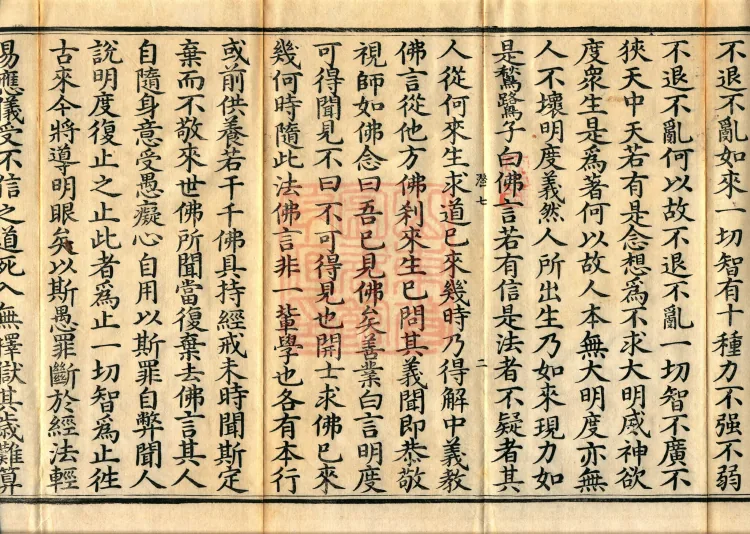 不退不亂如來一切智有十種力不强不弱
不退不亂何以故不退不亂一切智不廣不
狹天中天若有是念想為不求大明咸神欲
度衆生是爲著何以故人本無大明度亦無
人不壞明度義然人所出生乃如來現力如
是鶖鷺子白佛言若有信是法者不疑者其
潜七 二
人從何來生求道已來幾時乃得解中義教
佛言從他方佛刹來生已問其義聞即恭敬
視師如佛念曰吾已見佛矣善業白言明度
可得聞見不曰不可得見也開士求佛已來
幾何時隨此法佛言非一輩學也各有本行
或前供養若干千佛具持經戒未時聞斯定
棄而不敬來世佛所聞當復棄去佛言其人
自隨身意受愚癡心自用以斯罪自弊聞人
說明度復止之止此者爲止一切智爲止徃
古來今將導明眼矣以斯愚罪斷於經法輕
易應儀受不信之道死入無擇獄其歲難算